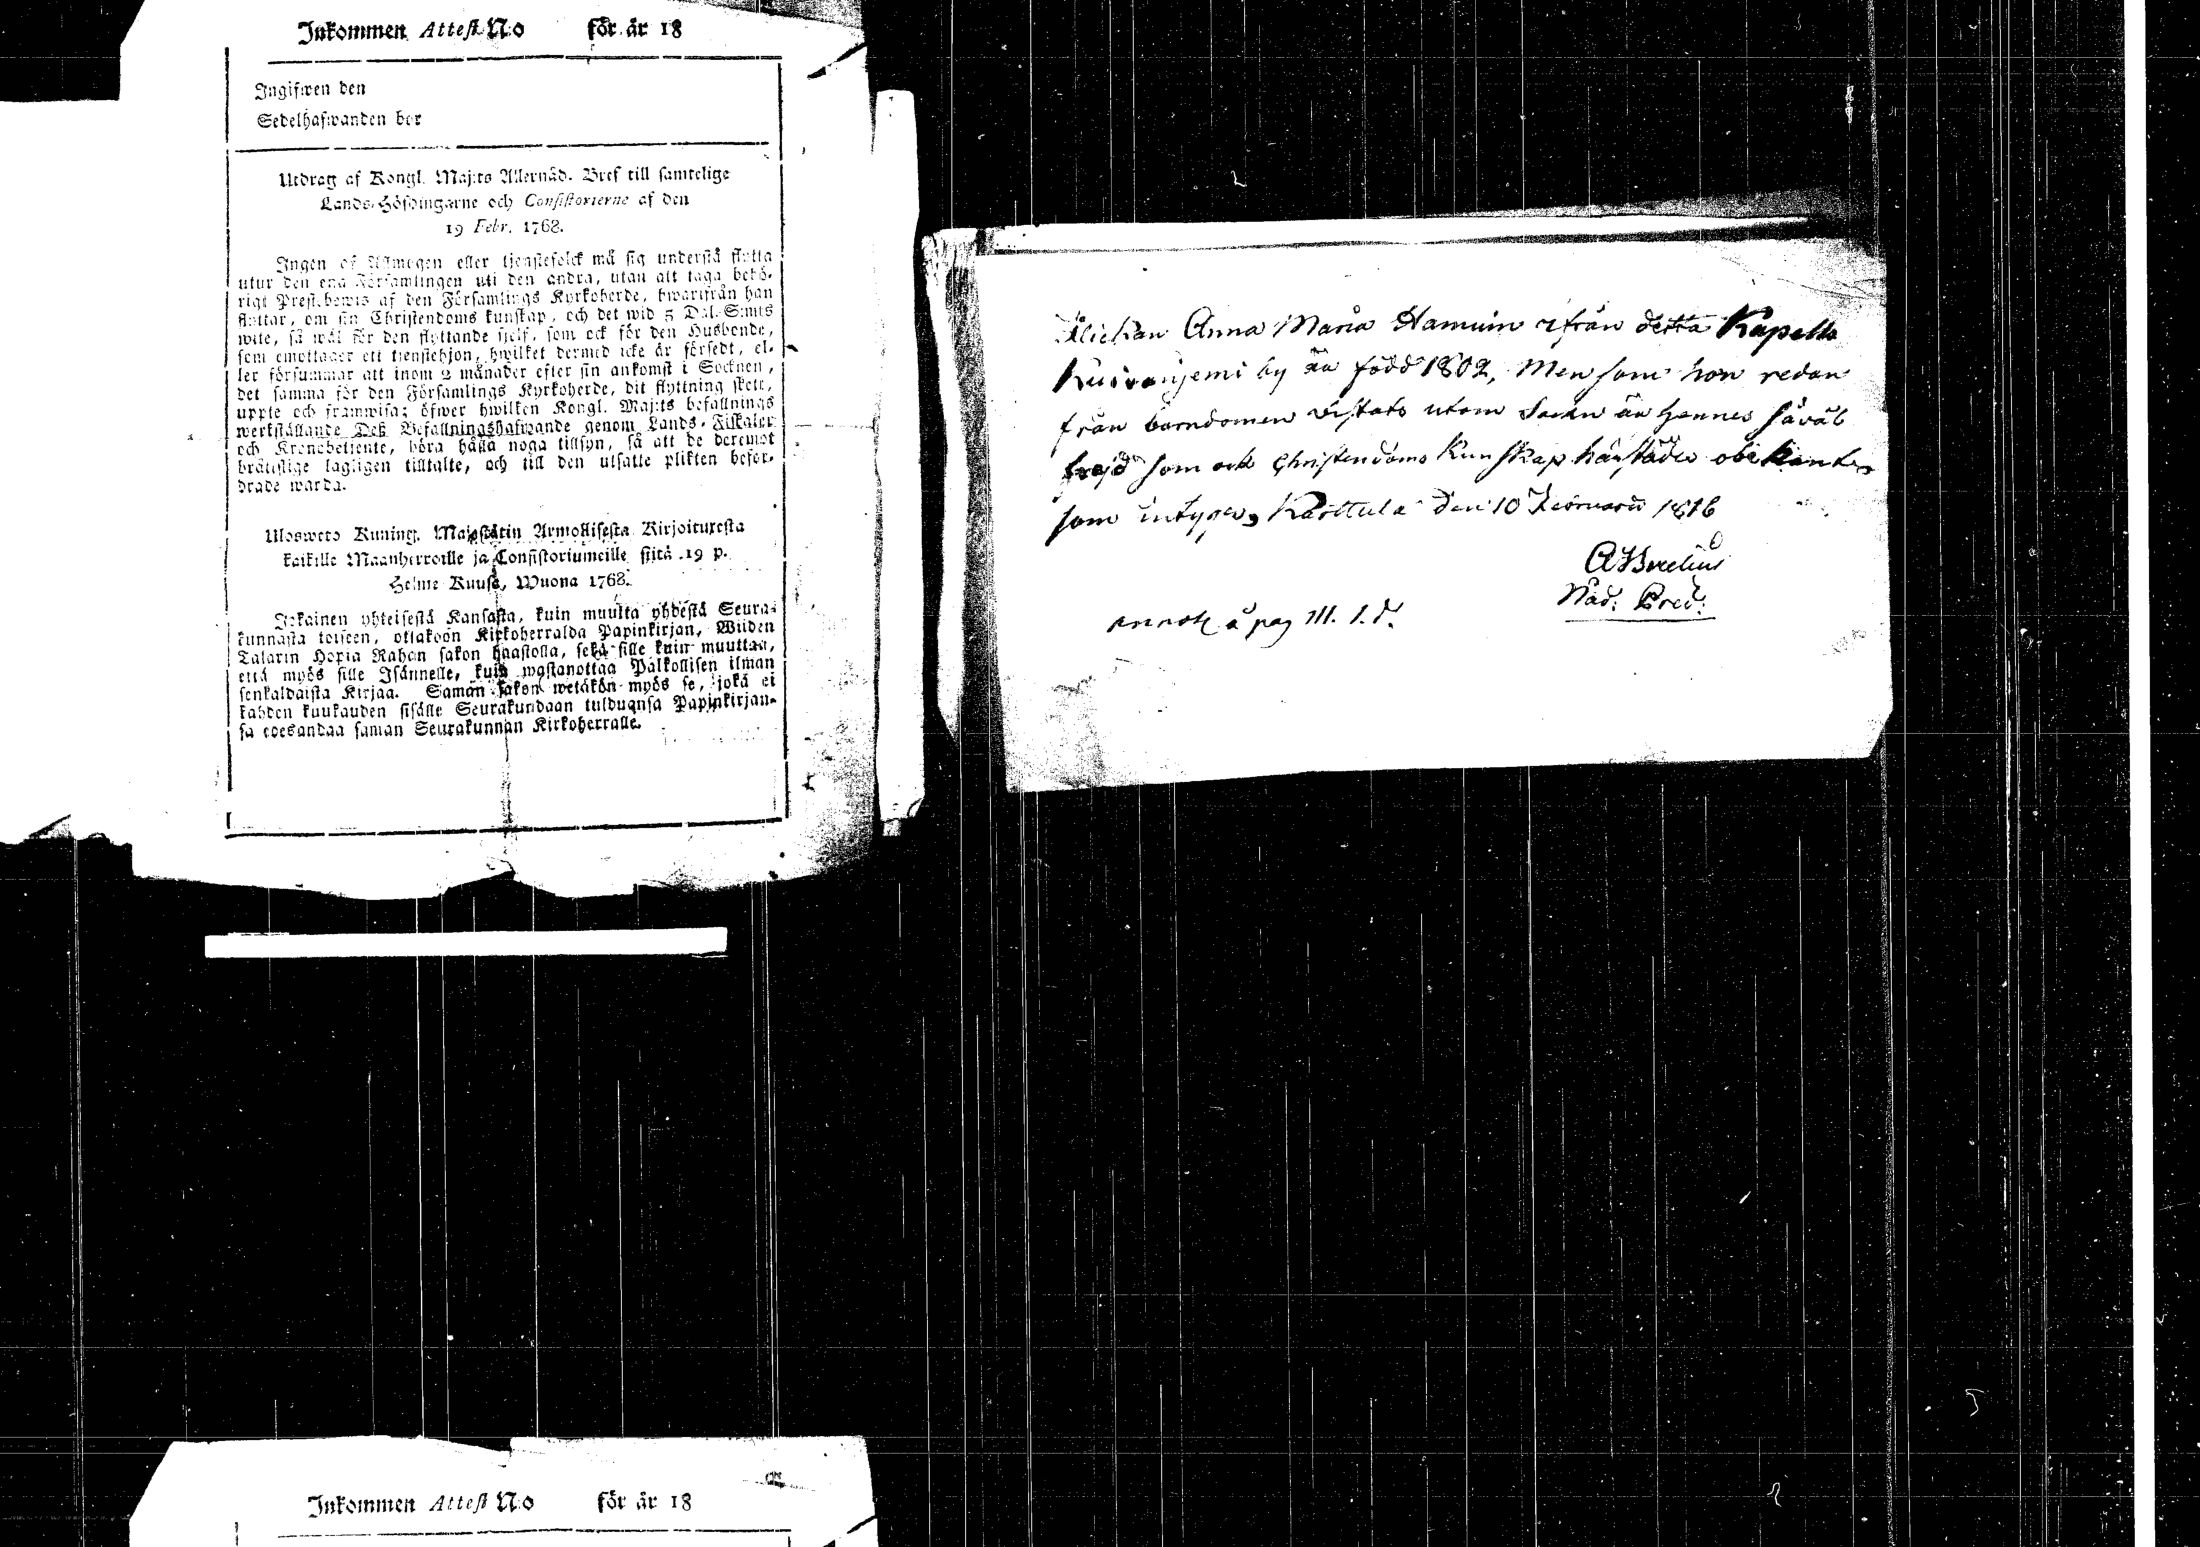 Inkommen Attest N:o för år 18
Ingifwen den
Sedelhafwanden bor
Utdrag af Kongl. Maj:ts Allernåd. Bref till samtelige
Lands-Höfdingarne och Consistorierne af den
19 Febr. 1768.
Ingen af Allmogen eller tjenstefolck må sig understå flytta
utur den ena Församlingen uti den andra, utan att taga behö-
rigt Prest-bewis af den Församlings Kyrkoherde, hwarifrån han
flyttar, om sin Christendoms kunskap, och det wid 5 Dal. S:mts
wite, så wäl för den flyttande sjelf, som ock för den Husbonde,
som emottager ett tjenstehjon, hwilket dermed icke är försedt, el-
ler försummar att inom 2 månader efter sin ankomst i Socknen,
det samma för den Församlings Kyrkoherde, dit flyttning skett,
uppte och framwisa; öfwer hwilken Kongl. Maj:ts befallnings
werkställande Deß Befallningshafwande genom Lands-Fiskaler
och Kronobetjente, böra hålla noga tillsyn, så att de deremot
brottslige lagligen tilltalte, och till den utsatte plikten befor-
drade warda.
Ulosweto Kuning. Majestätin Armollisesta Kirjoituxesta
kaikille Maanherroille ja Consistoriumeille siitä 19 p.
Helme Kuusa, Wuona 1768.
Jokainen yhteisestä Kansasta, kuin muutta yhdestä Seura-
kunnasta toiseen, ottakoon Kirkoherralda Papinkirjan, Wiiden
Talarin Hopia Rahan sakon haastolla, sekä sille kuin muuttaa,
että myös sille Isännelle, kuin wastanottaa Palkollisen ilman
senkaldaista Kirjaa. Saman sakon wetäkön myös se, joka ei
kahden kuukauden sisälle Seurakundaan tulduansa Papinkirjan-
sa edesandaa saman Seurakunnan Kirkoherralle.
Flickan Anna Maria Hamuin ifrån detta Kapells
Kuivaniemi by är född 1802, Men som hon redan
från barndomen vistats utom Sockn är hennes såväl
frejd som ock Christendoms Kunskap härstädes obekante
som intygas, Karttula den 10 Februarii 1816
Nåd: Pred:
annot. å pag 111. 1.d.
Inkommen Attest N:o för år 18